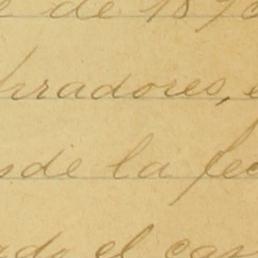 de 189
bradores,
sde la fec
ado el cas